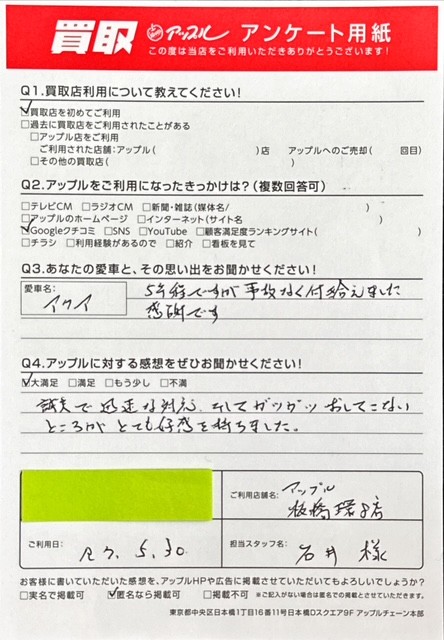 買取 アップル アンケート用紙
この度は当店をご利用いただきありがとうございます!
Q1.買取店利用について教えてください!
☑買取店を初めてご利用
□過去に買取店をご利用されたことがある
□アップル店をご利用
ご利用された店舗:アップル( )店 アップルへのご売却( 回目)
□その他の買取店( )
Q2.アップルをご利用になったきっかけは?(複数回答可)
□テレビCM □ラジオCM □新聞・雑誌(媒体名/ )
□アップルのホームページ □インターネット(サイト名 )
☑Googleクチコミ □SNS □YouTube □顧客満足度ランキングサイト( )
□チラシ □利用経験があるので □紹介 □看板を見て
Q3.あなたの愛車と、その思い出をお聞かせください!
愛車名:
アクア
5年程ですが事故なく付き合えました
感謝です
Q4.アップルに対する感想をぜひお聞かせください!
☑大満足 □満足 □もう少し □不満
誠実で迅速な対応、そしてガツガツおしてこない
ところがとても好感を持ちました。
ご利用店舗名: アップル
板橋環8店
ご利用日: R7. 5. 30
担当スタッフ名: 石井 様
お客様に書いていただいた感想を、アップルHPや広告に掲載させていただいてもよろしいでしょうか?
□実名で掲載可 ☑匿名なら掲載可 □掲載不可 ※ご記入がない場合は匿名での掲載とさせていただきます。
東京都中央区日本橋1丁目16番11号日本橋Dスクエア9F アップルチェーン本部